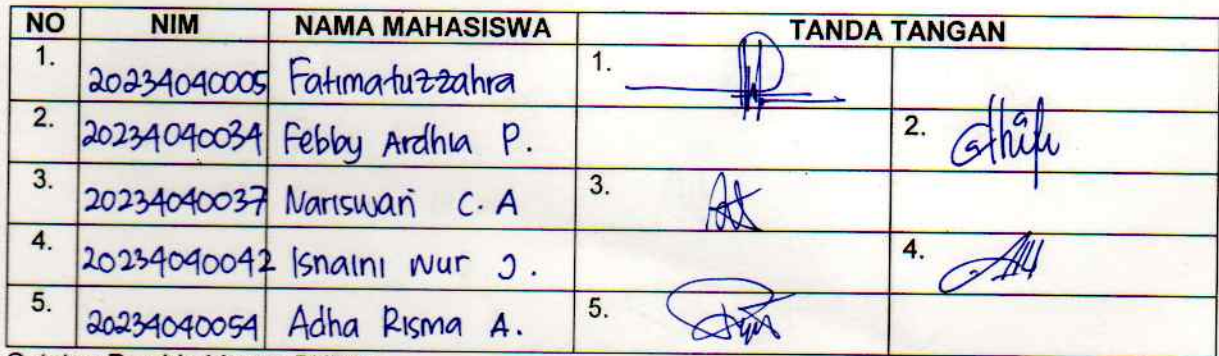 NO NIM NAMA MAHASISWA TANDA TANGAN
1. 20234040005 Fatimatuzzahra 1.
2. 20234040034 Febby Ardhia P. 2.
3. 20234040037 Nariswari C.A 3.
4. 20234040042 Isnaini Nur J. 4.
5. 20234040054 Adha Risma A. 5.